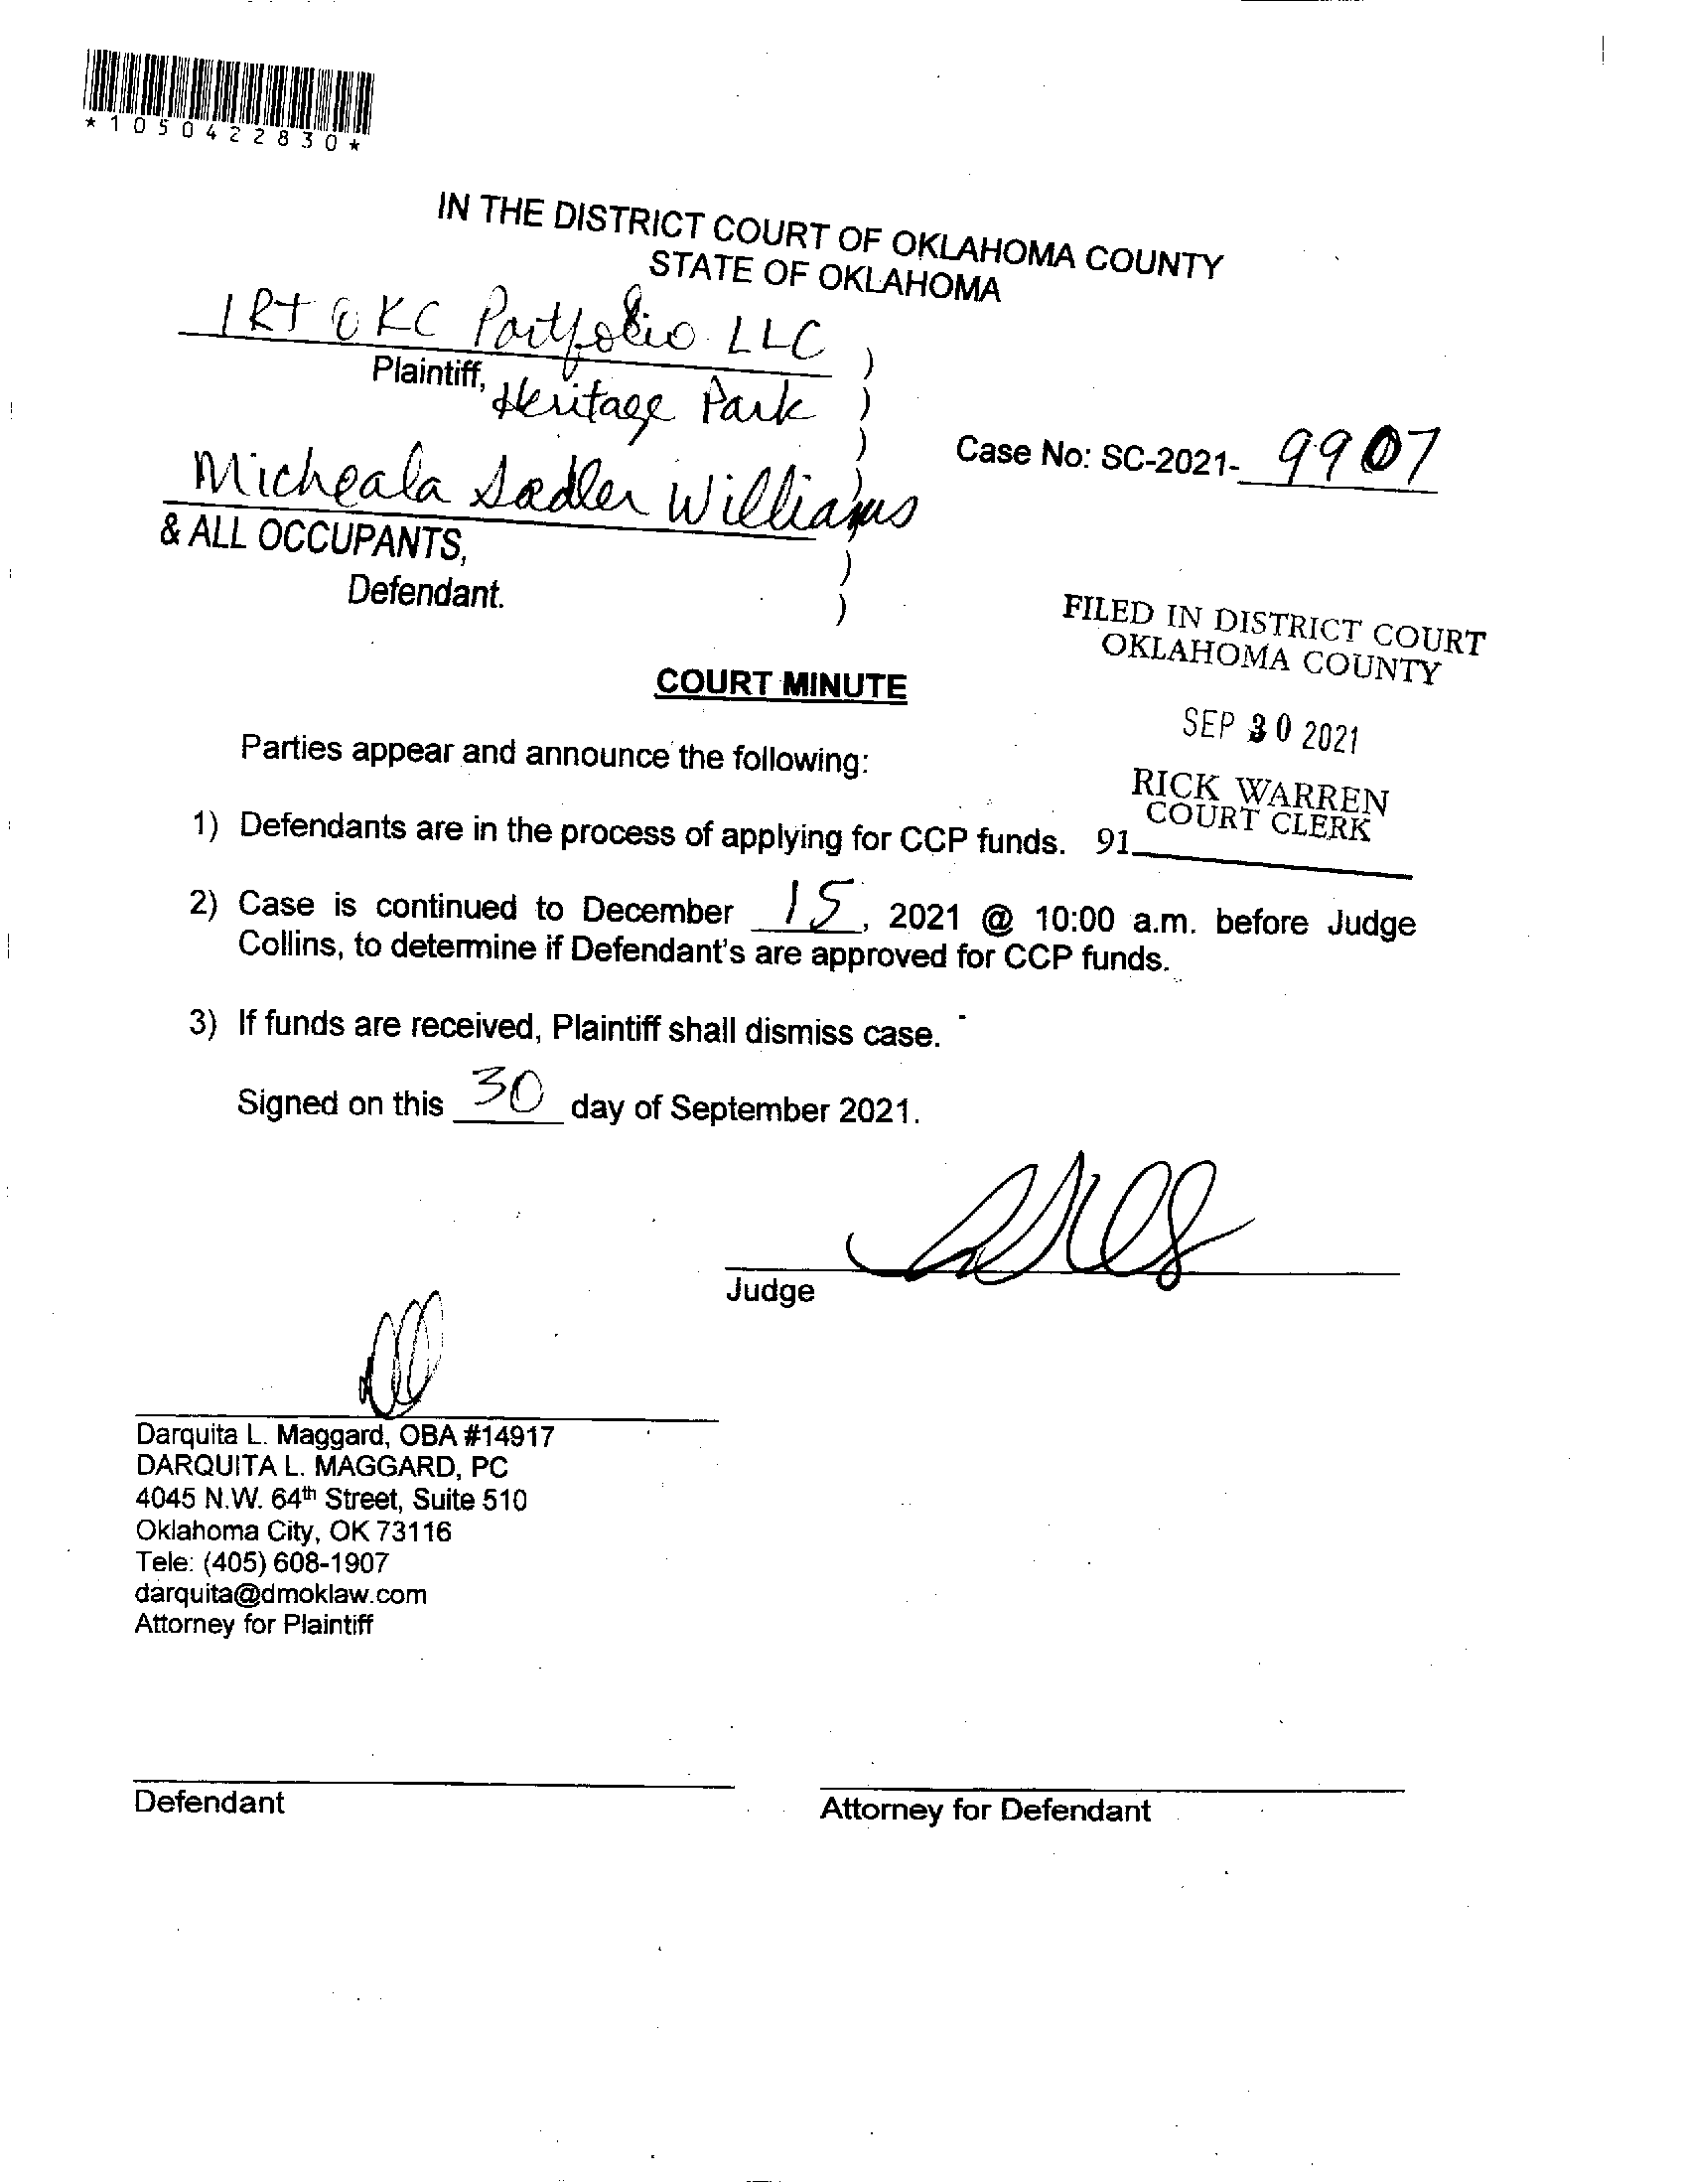 *1050422830*
IN THE DISTRICT COURT OF OKLAHOMA COUNTY
STATE OF OKLAHOMA
IRT OKC Portfolio LLC )
Plaintiff, Heritage Park )
)
Case No: SC-2021- 9907
Micheala Sadler Williams )
& ALL OCCUPANTS, )
Defendant. )
FILED IN DISTRICT COURT
OKLAHOMA COUNTY
COURT MINUTE
SEP 30 2021
Parties appear and announce the following:
RICK WARREN
COURT CLERK
1) Defendants are in the process of applying for CCP funds. 91
2) Case is continued to December 15, 2021 @ 10:00 a.m. before Judge
Collins, to determine if Defendant's are approved for CCP funds.
3) If funds are received, Plaintiff shall dismiss case.
Signed on this 30 day of September 2021.
Judge
Darquita L. Maggard, OBA #14917
DARQUITA L. MAGGARD, PC
4045 N.W. 64th Street, Suite 510
Oklahoma City, OK 73116
Tele: (405) 608-1907
darquita@dmoklaw.com
Attorney for Plaintiff
Defendant
Attorney for Defendant